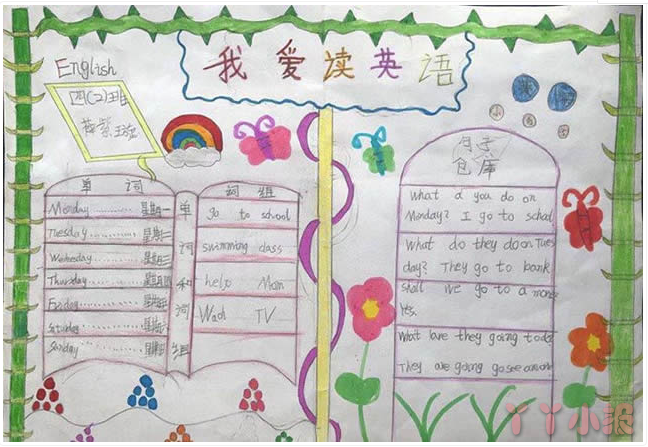 我爱读英语
English
四(2)班
单词
Monday 星期一
Tuesday 星期二
Wednesday 星期三
Thursday 星期四
Friday 星期五
Saturday 星期六
Sunday 星期日
单词和词组
词组
go to school
swimming class
help Mom
Wach TV
句子
仓库
What d you do on
Monday? I go to school
What do they do on Tues
day? They go to bank
shall we go to a
Yes.
What are they going to do?
They are going go see an
丫丫小报